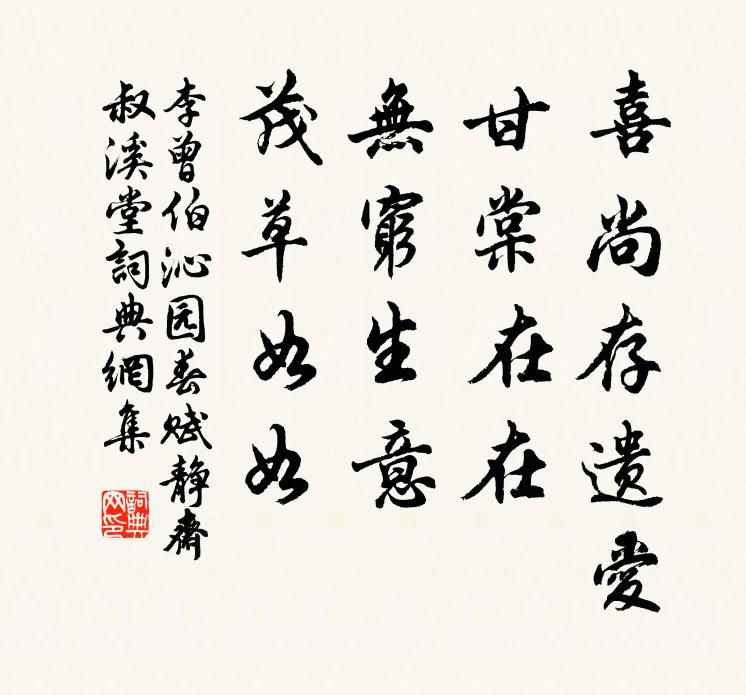 喜尚存遗愛
甘棠在在
無窮生意
茂草如如
李曾伯沁园春赋静齋
叔溪堂詞典網集
詞典网印